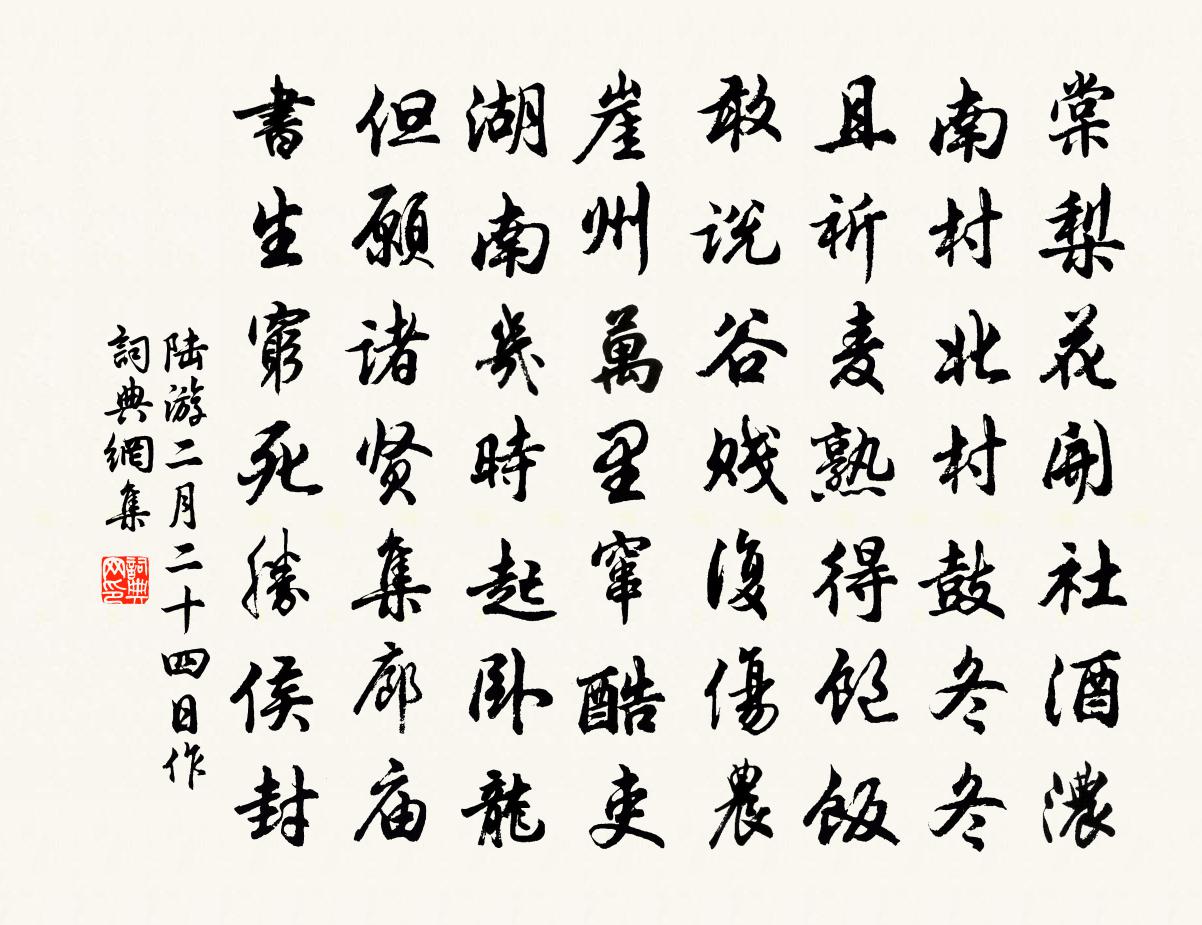 棠梨花開社酒濃
南村北村鼓冬冬
且祈麦熟得飽飯
敢説谷賤復傷農
崖州萬里竄酷吏
湖南幾時起卧龍
但願諸贤集廊庙
書生窮死勝侯封
陆游二月二十四日作
詞典網集
詞典网印